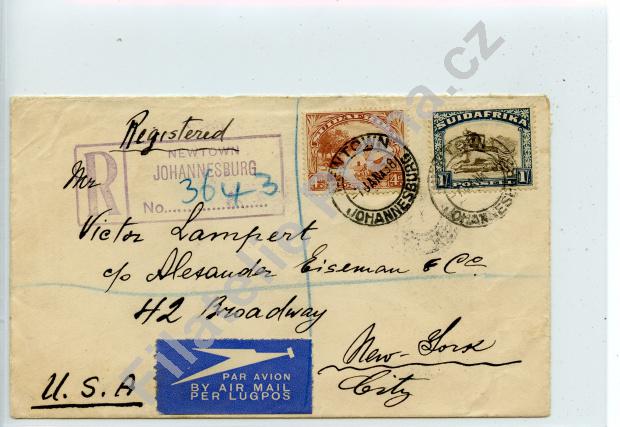 Registered
R
NEWTOWN
JOHANNESBURG
No. 3643
SUIDAFRIKA
NEWTOWN
JAN 38
JOHANNESBURG
SUIDAFRIKA
1/- POSSEEL 1/-
JOHANNESB
Mr
Victor Lampert
c/o Alexander Eiseman & Co
42 Broadway
New-York
City
U.S.A
PAR AVION
BY AIR MAIL
PER LUGPOS